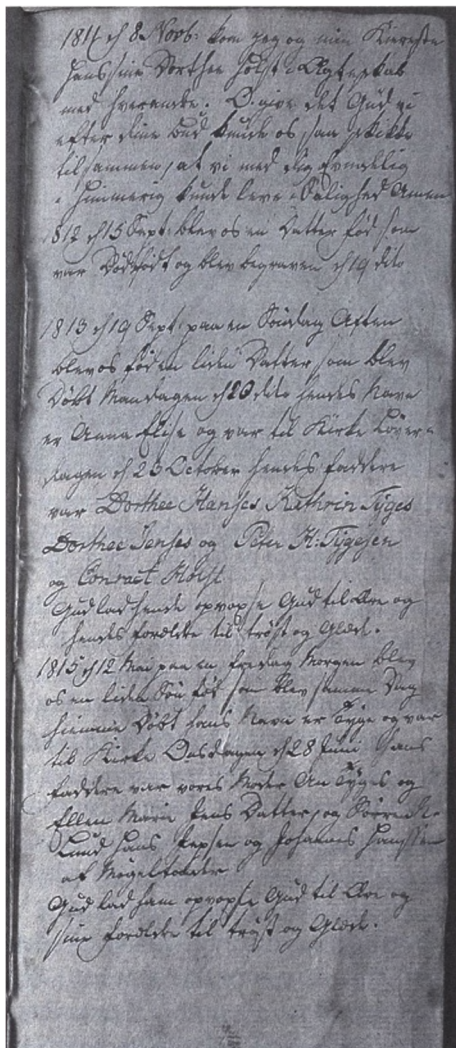 1811 d 8 Novb: kom jeg og min Kiereste
Hanssine Dorthe Holst i Ægteskab
med hverandre. O. give det Gud vi
efter dine bud kunde os saa skikke
tilsammen, at vi med dig Evindelig
i Himmerig kunde leve i Salighed Amen
1812 d 15 Sept: blev os en Datter fød som
var Dødfødt og blev begraven d 19 dito
1813 d 19 Sept: paa en Søndag Aften
blev os fød en liden Datter som blev
Døbt Mandagen d 20 dito hendes Navn
er Anna Elise og var til Kirke Løver-
dagen d 23 October hendes faddere
var Dorthee Hanses Kathrin Tyges
Dorthee Jenses og Peter H: Tygesen
og Conract Holst
Gud lad hende opvoxse Gud til Ære og
hendes forældre til trøst og Glæde.
1815 d 12 Mai paa en fredag Morgen blev
os en liden Søn fød som blev samme Dag
hiemme Døbt hans Navn er Tyge og var
til Kirke Onsdagen d 28 Juni hans
faddere var vores Moder An Tyges og
Ellen Marie Jens Datter, og Sørren
Lund Hans Jepsen og Johannes Hanssen
af Møgeltønder
Gud lad ham opvoxse Gud til Ære og
sine forældre til trøst og Glæde.